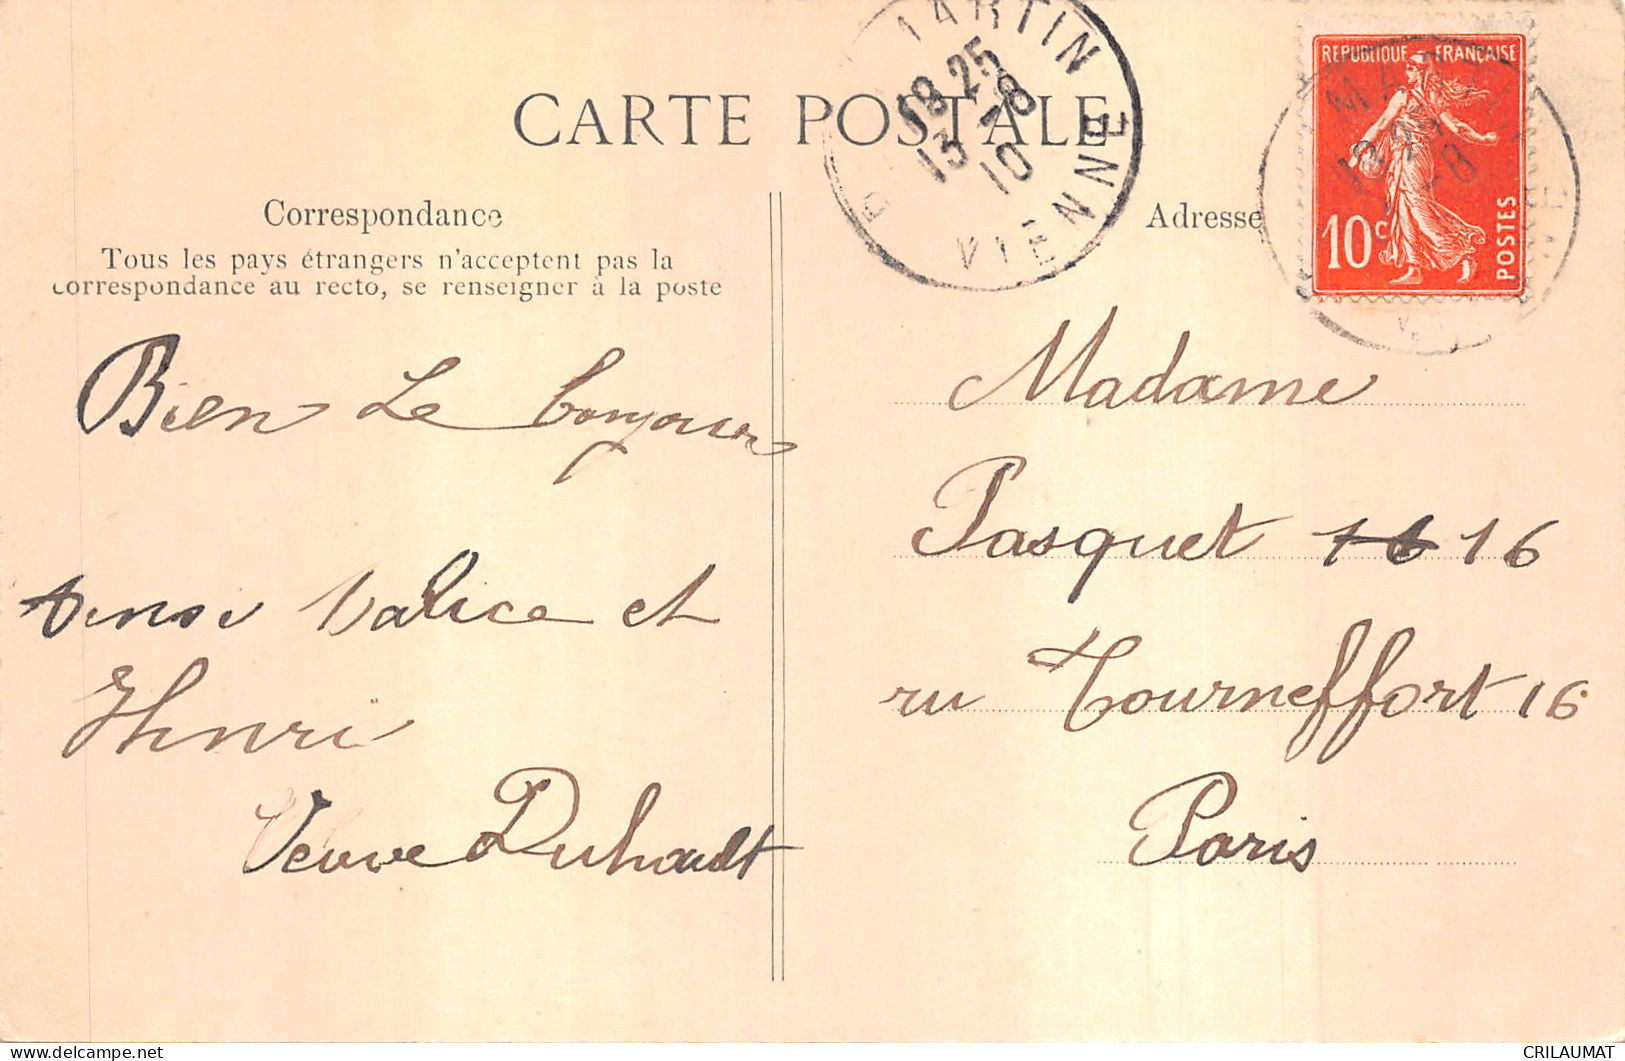 CARTE POSTALE
Correspondance
Tous les pays étrangers n'acceptent pas la
correspondance au recto, se renseigner à la poste
Bien Le bonjour
valice et
Henri
Veuve Duhault
ARTIN
18 25
13 - 8
10
VIENNE
Adresse
REPUBLIQUE FRANÇAISE
10c
POSTES
Madame
Pasquet 16 16
ru Tourneffort 16
Paris
CRILAUMAT